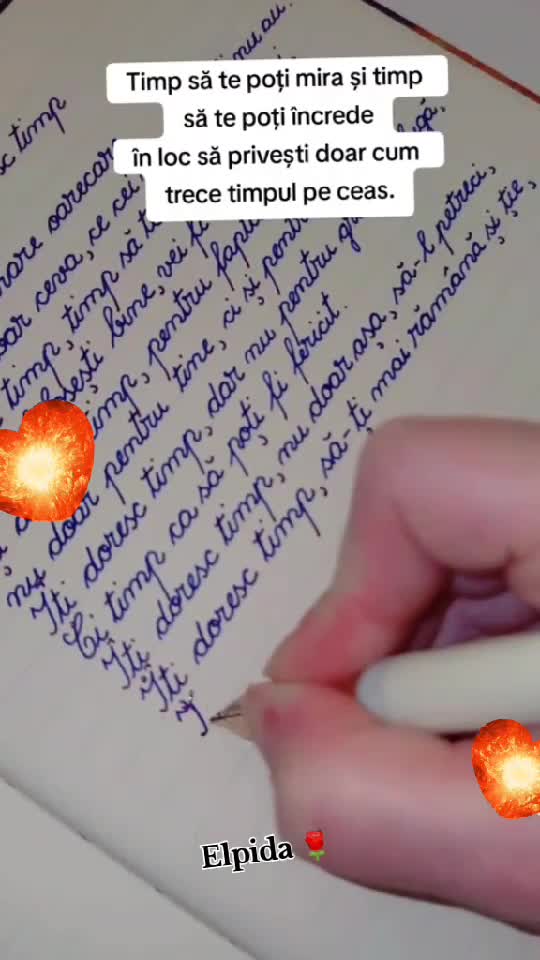 Timp să te poți mira și timp
să te poți încrede
în loc să privești doar cum
trece timpul pe ceas.
nu au.
timp
oarecare
doar ceva, ce cei
timp, timp să te
bine, vei
timp, pentru
nu doar pentru tine, ci și
Îți doresc timp, dar nu pentru
Ci timp ca să poți fi fericit.
Îți doresc timp, nu doar așa, să-l petreci,
Îți doresc timp, să-ți mai rămână și ție,
Elpida